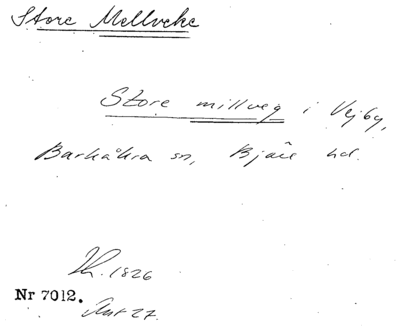 Store Mellveke
Store millveg i Vejby,
Barkåkra sn, Bjäre hd.
1826
Nr 7012.
27.